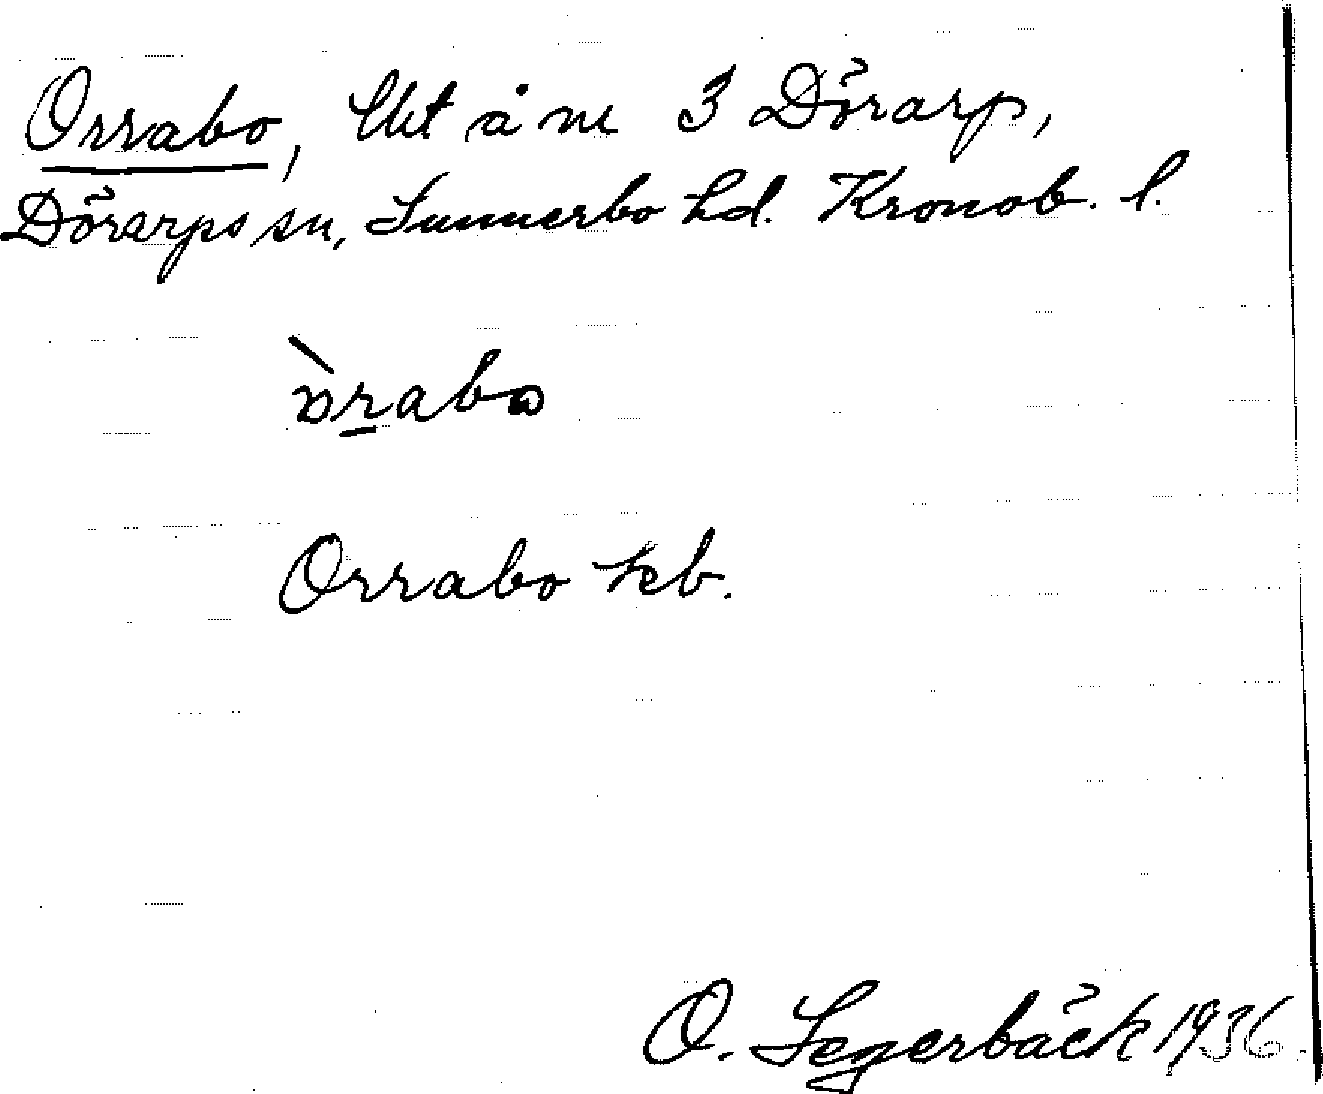 Orrabo, Ut å nr 3 Dörarp,
Dörarps sn, Sunnerbo hd. Kronob. l.
Orrabo kb.
O. Segerbäck 1936.